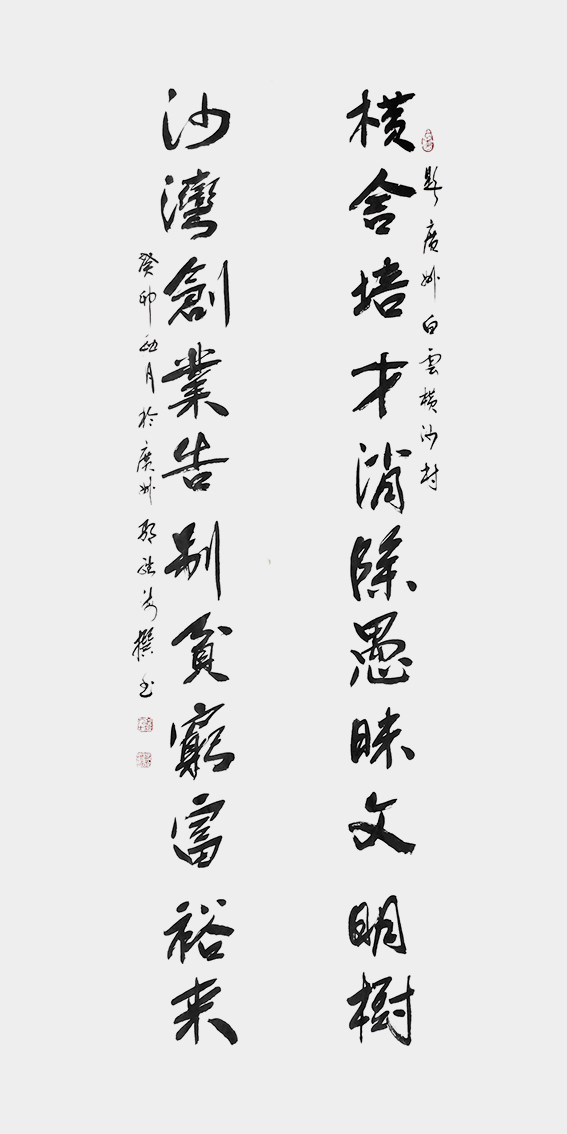 題廣州白雲横沙村
横舍培才消除愚昧文明樹
沙灣創業告别貧窮富裕来
癸卯酉月於廣州撰书